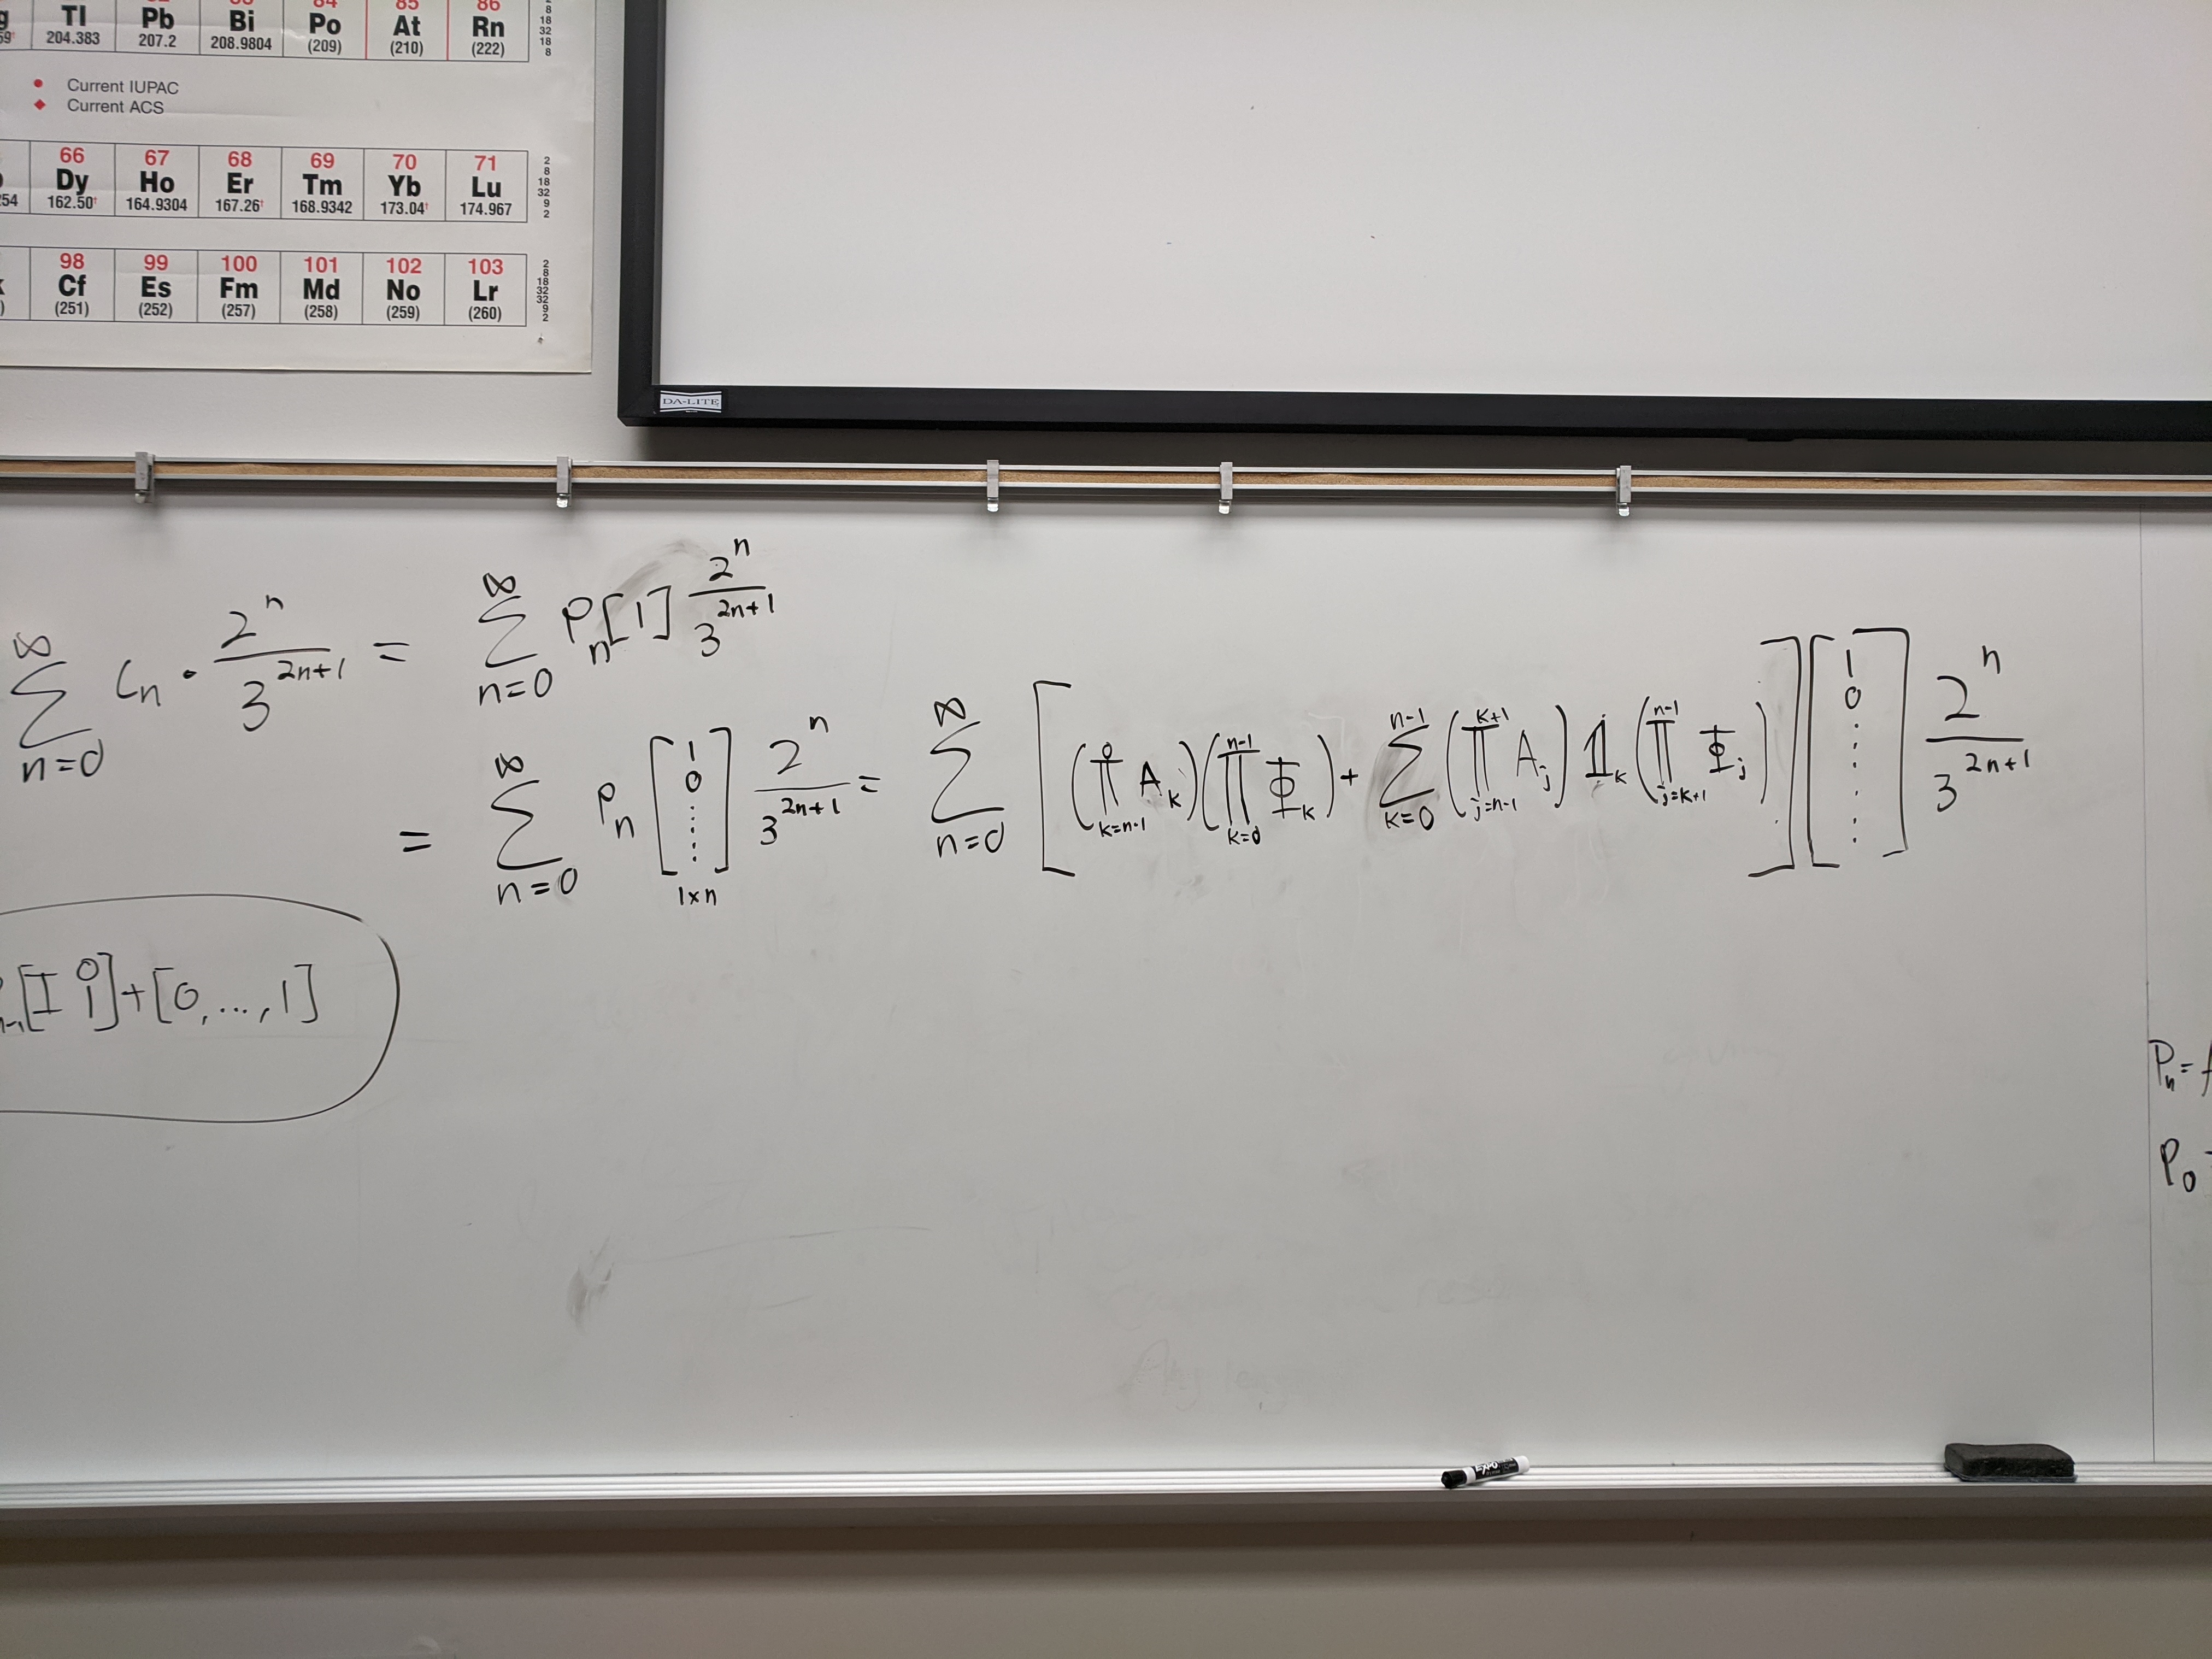 Tl Pb Bi Po At Rn
204.383 207.2 208.9804 (209) (210) (222)
8
18
32
18
8
● Current IUPAC
◆ Current ACS
66 67 68 69 70 71
Dy Ho Er Tm Yb Lu
162.50† 164.9304 167.26† 168.9342 173.04† 174.967
2
8
18
32
9
2
98 99 100 101 102 103
Cf Es Fm Md No Lr
(251) (252) (257) (258) (259) (260)
2
8
18
32
32
9
2
DA-LITE
∑_{n=0}^{∞} C_n · 2^n / 3^{2n+1} = ∑_{n=0}^{∞} P_n[1] 2^n / 3^{2n+1}
= ∑_{n=0}^{∞} P_n [1 0 ⋮]_{1×n} 2^n / 3^{2n+1} = ∑_{n=0}^{∞} [(∏_{k=n-1}^{0} A_k)(∏_{k=0}^{n-1} Φ_k) + ∑_{k=0}^{n-1} (∏_{j=n-1}^{k+1} A_j) 𝟙_k (∏_{j=k+1}^{n-1} Φ_j)] [1 0 ⋮] 2^n / 3^{2n+1}
[I 0 1] + [0, ..., 1]
P_n =
P_0
EXPO